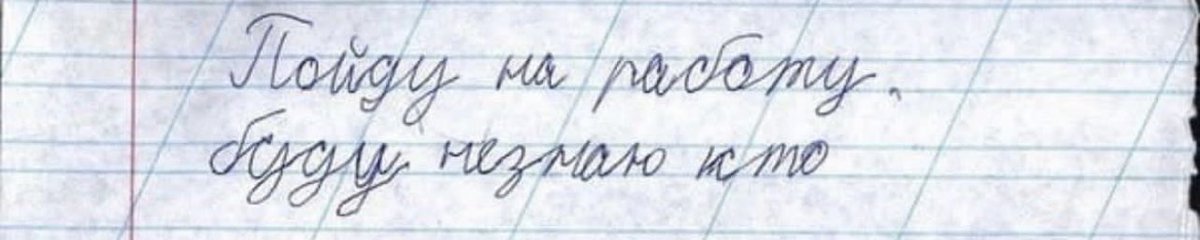 Пойду на работу.
буду незнаю кто